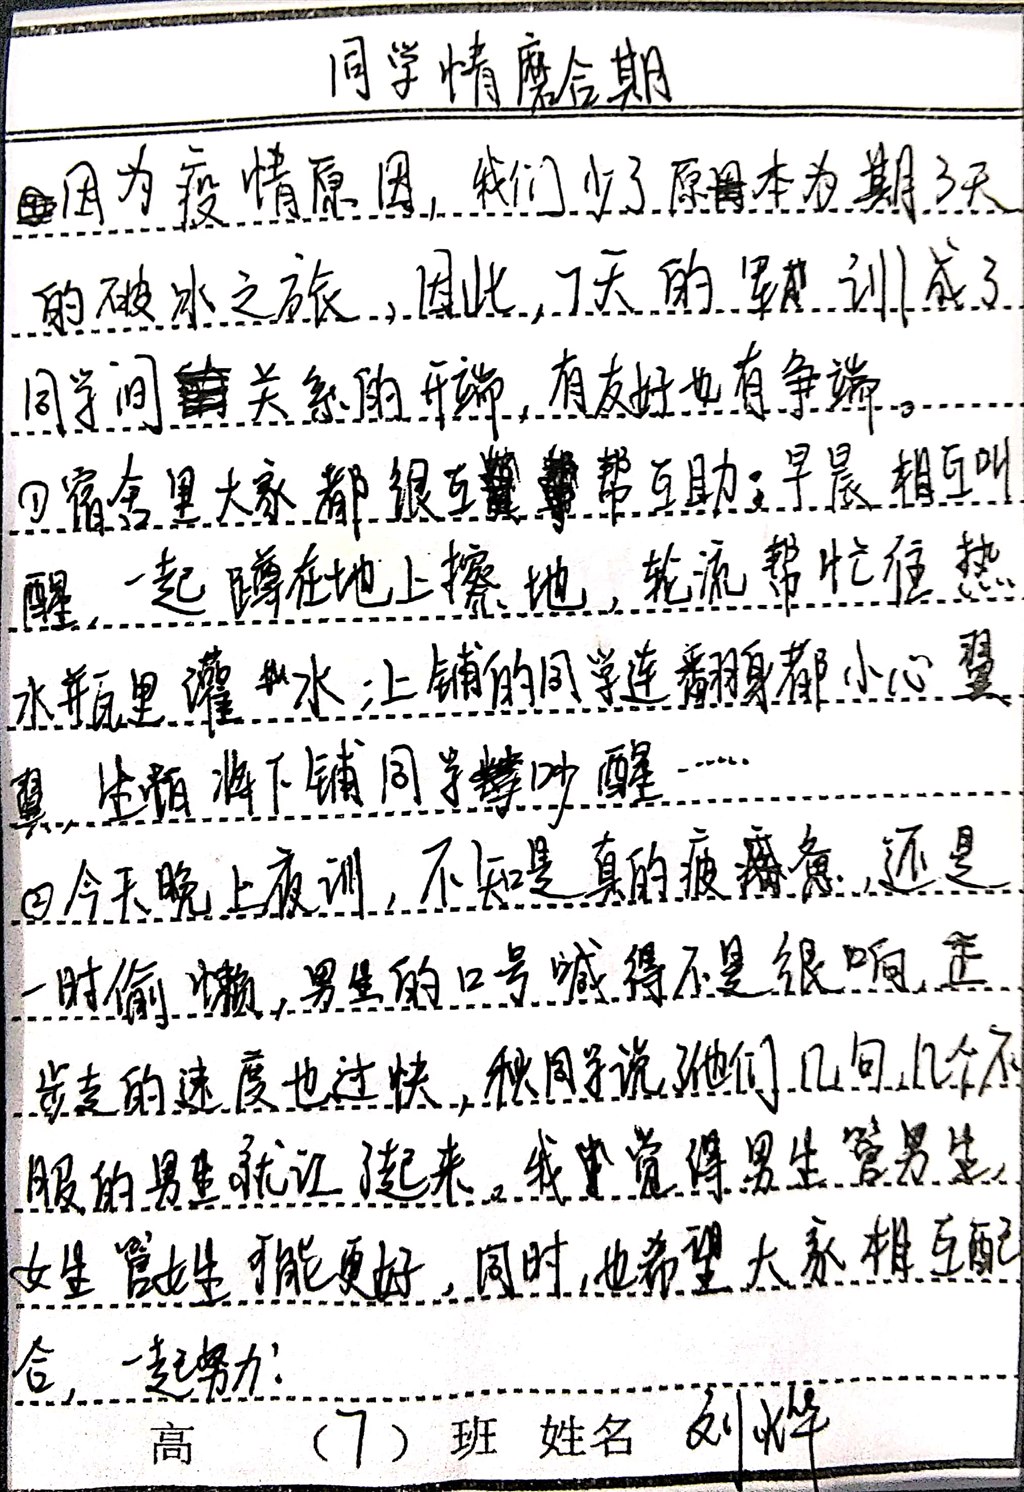 同学情磨合期
因为疫情原因，我们少了原本为期3天
的破冰之旅，因此，7天的军训成了
同学间关系的开端，有友好也有争端。
①宿舍里大家都很互帮互助：早晨相互叫
醒，一起蹲在地上擦地，轮流帮忙往热
水瓶里灌水；上铺的同学连翻身都小心翼
翼，生怕将下铺同学吵醒……
②今天晚上夜训，不知是真的疲惫，还是
一时偷懒，男生的口号喊得不是很响，正
步走的速度也过快，秋同学说了他们几句，几个不
服的男生就讧了起来。我觉得男生管男生，
女生管女生可能更好，同时，也希望大家相互配
合，一起努力！
高 （7）班 姓名 刘烨